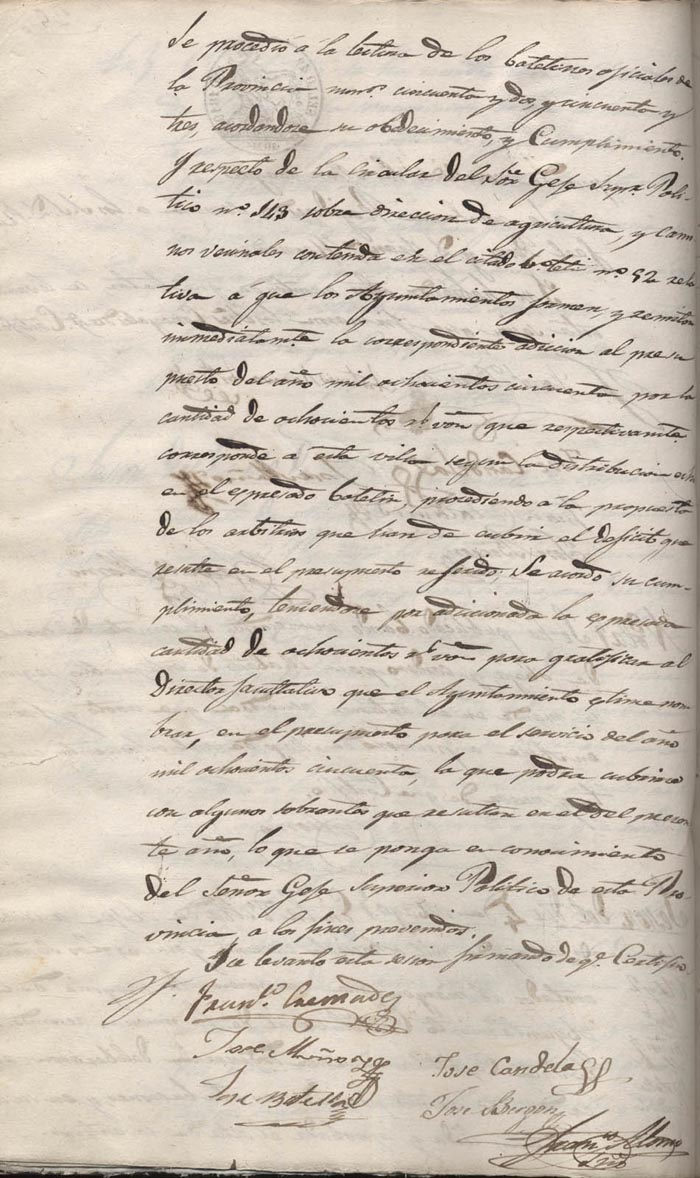 Se procedió a la letura de los boletines oficiales de
la Provincia num.s cincuenta y dos y cincuenta y
tres, acordandose su obedecimiento, y Cumplimiento.
Y respecto de la Circular del Sor Gefe Supr. Poli-
tico n.º 143 sobre direccion de agricultura, y cami
nos vecinales contenida en el citado boletin n.º 52 rela
tiva á que los Ayuntamientos formen y remitan
inmediatam.te la correspondiente adicion al presu
puesto del año mil ochocientos cincuenta por la
cantidad de ochocientos r.s von que respectivamte
corresponde á esta villa segun la distribucion
en el espresado boletin, procediendo a la propuesta
de los arbitrios que han de cubrir el deficit que
resulte en el presupuesto referido: Se acordó su cum-
plimiento, teniendose por adicionada la espresada
cantidad de ochocientos r.s von para gratificar al
Director facultativo que el Ayuntamiento estime nom
brar, en el presupuesto para el servicio del año
mil ochocientos cincuenta, la que podrá cubrirse
con algunos sobrantes que resultan en el del presen
te año, lo que se ponga en conocimiento
del Señor Gefe Superior Politico de esta Pro-
vincia a los fines prevenidos.
Y se levantó esta sesion firmando de q.e Certifico
Fran.co Cremades
Jose Muñoz
Jose Candela
Jose Botella
Jose Bergon
Fran.co Alonso
Srio